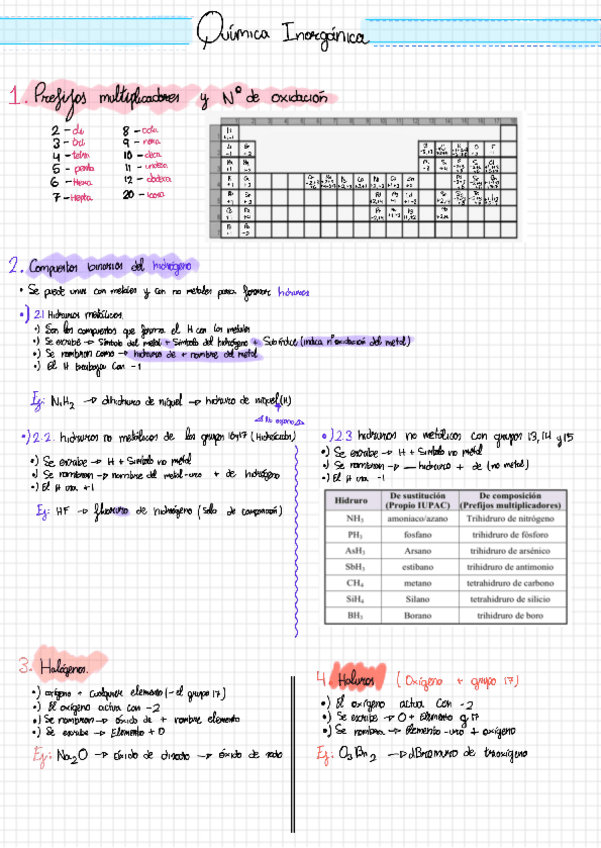 Química Inorgánica
1. Prefijos multiplicadores y Nº de oxidación
2 - di
3 - tri
4 - tetra
5 - penta
6 - Hexa
7 - Hepta
8 - octa
9 - nona
10 - deca
11 - undeca
12 - dodeca
20 - icosa
2. Compuestos binarios del hidrógeno
• Se puede unir con metales y con no metales para formar hidruros
•) 2.1 Hidruros metálicos.
•) Son los compuestos que forma el H con los metales
•) Se escribe → Símbolo del metal + Símbolo del hidrógeno + Subíndice (indica nº oxidación del metal)
•) Se nombran como → hidruro de + nombre del metal
•) El H trabaja con -1
Ej: NiH2 → dihidruro de níquel → hidruro de níquel (II)
•) 2.2. hidruros no metálicos de los grupos 16 y 17 (Hidrácidos)
•) Se escribe → H + Símbolo no metal
•) Se nombran → nombre del metal-uro + de hidrógeno
•) El H usa +1
Ej: HF → fluoruro de hidrógeno (solo de composición)
•) 2.3 hidruros no metálicos con grupos 13, 14 y 15
•) Se escribe → H + Símbolo no metal
•) Se nombran → — hidruro + de (no metal)
•) El H usa -1
Hidruro De sustitución (Propio IUPAC) De composición (Prefijos multiplicadores)
NH3 amoniaco/azano Trihidruro de nitrógeno
PH3 fosfano trihidruro de fósforo
AsH3 Arsano trihidruro de arsénico
SbH3 estibano trihidruro de antimonio
CH4 metano tetrahidruro de carbono
SiH4 Silano tetrahidruro de silicio
BH3 Borano trihidruro de boro
3. Halógenos.
•) oxígeno + cualquier elemento (- el grupo 17)
•) El oxígeno actúa con -2
•) Se nombran → óxido de + nombre elemento
•) Se escribe → Elemento + O
Ej: Na2O → óxido de disodio → óxido de sodio
4. Haluros (Oxígeno + grupo 17)
•) El oxígeno actua con -2
•) Se escribe → O + Elemento g.17
•) Se nombra → Elemento-uro + oxígeno
Ej: O3Br2 → dibromuro de trioxígeno